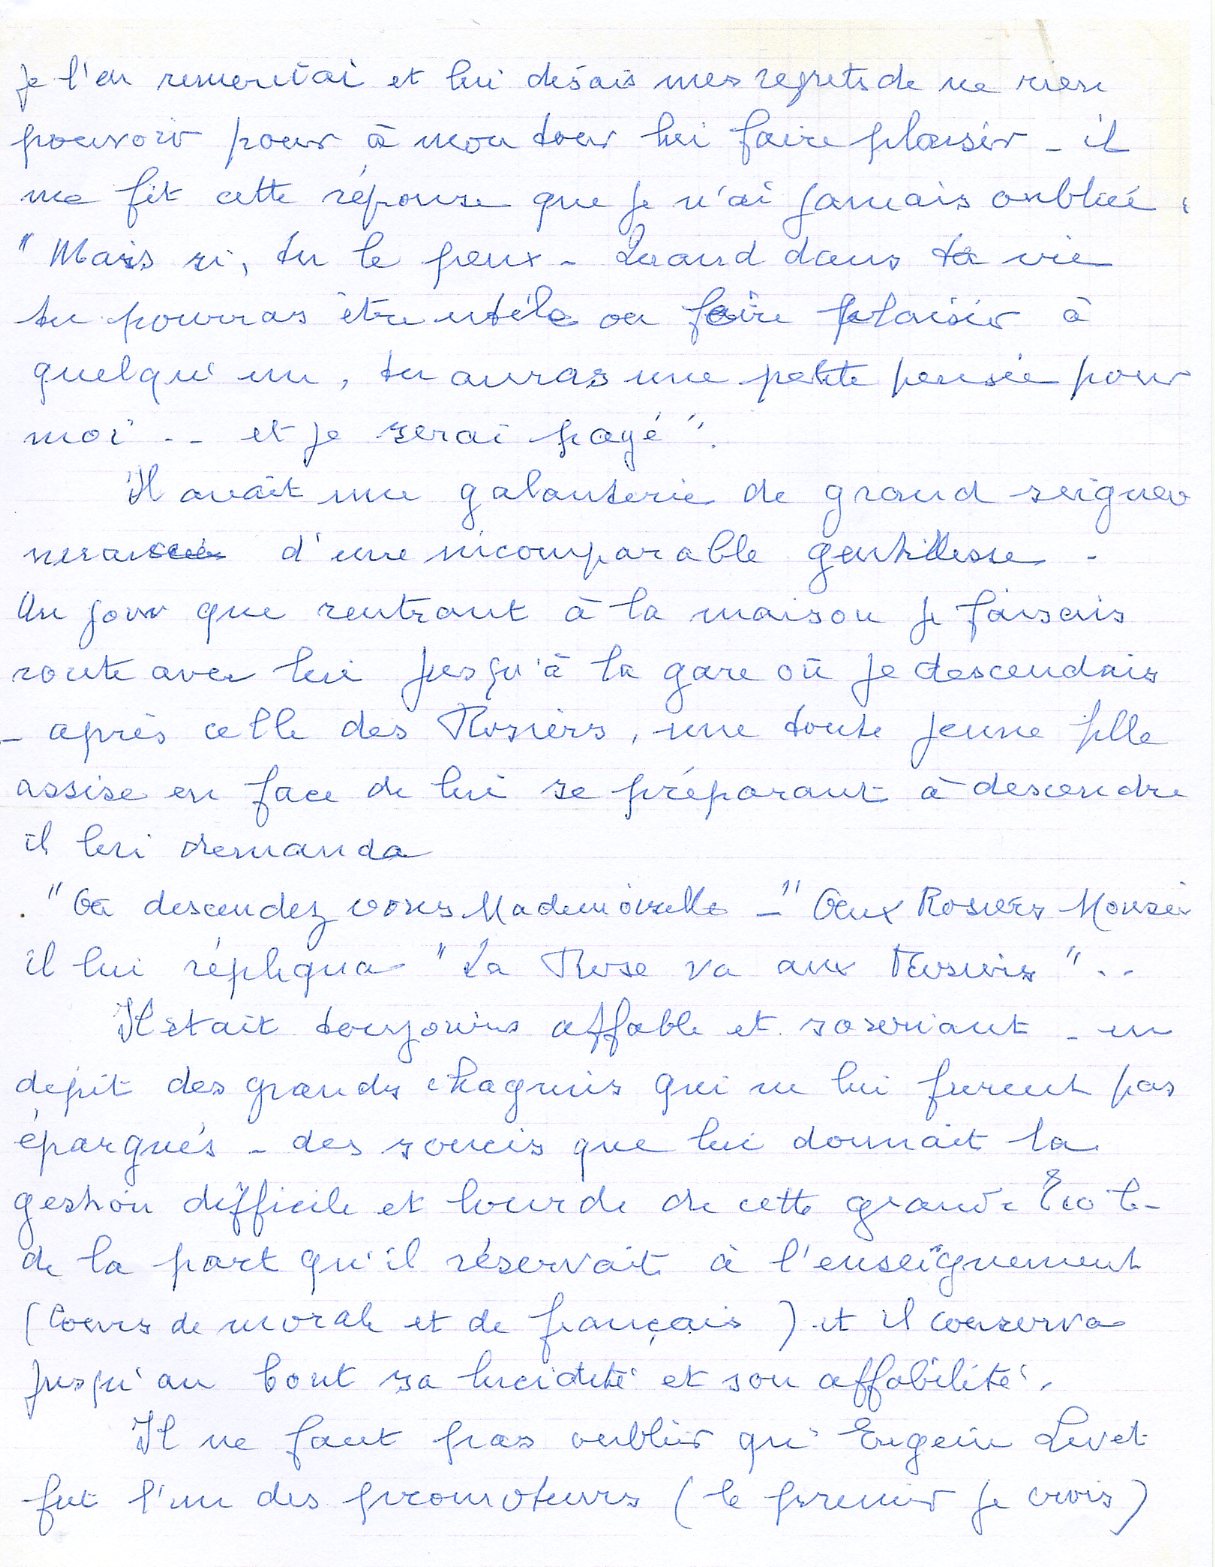 Je l'en remerciai et lui disais mes regrets de ne rien
pouvoir pour à mon tour lui faire plaisir - il
me fit cette réponse que je n'ai jamais oubliée :
"Mais si, tu le peux - Quand dans ta vie
tu pourras être utile ou faire plaisir à
quelqu'un, tu auras une petite pensée pour
moi .. et je serai payé".
Il avait une galanterie de grand seigneur
d'une incomparable gentillesse -
Un jour que rentrant à la maison je faisais
route avec lui jusqu'à la gare où je descendais
- après celle des Rosiers, une toute jeune fille
assise en face de lui se préparant à descendre
il lui demanda
"Où descendez vous Mademoiselle -" Aux Rosiers Monsieur
il lui répliqua "La Rose va aux Rosiers" ..
Il était toujours affable et souriant - en
dépit des grands chagrins qui ne lui furent pas
épargnés - des soucis que lui donnait la
gestion difficile et lourde de cette grande École -
de la part qu'il réservait à l'enseignement
(Cours de morale et de français) et il conserva
jusqu'au bout sa lucidité et son affabilité.
Il ne faut pas oublier qu'Eugène Livet
fut l'un des promoteurs (le premier je crois)